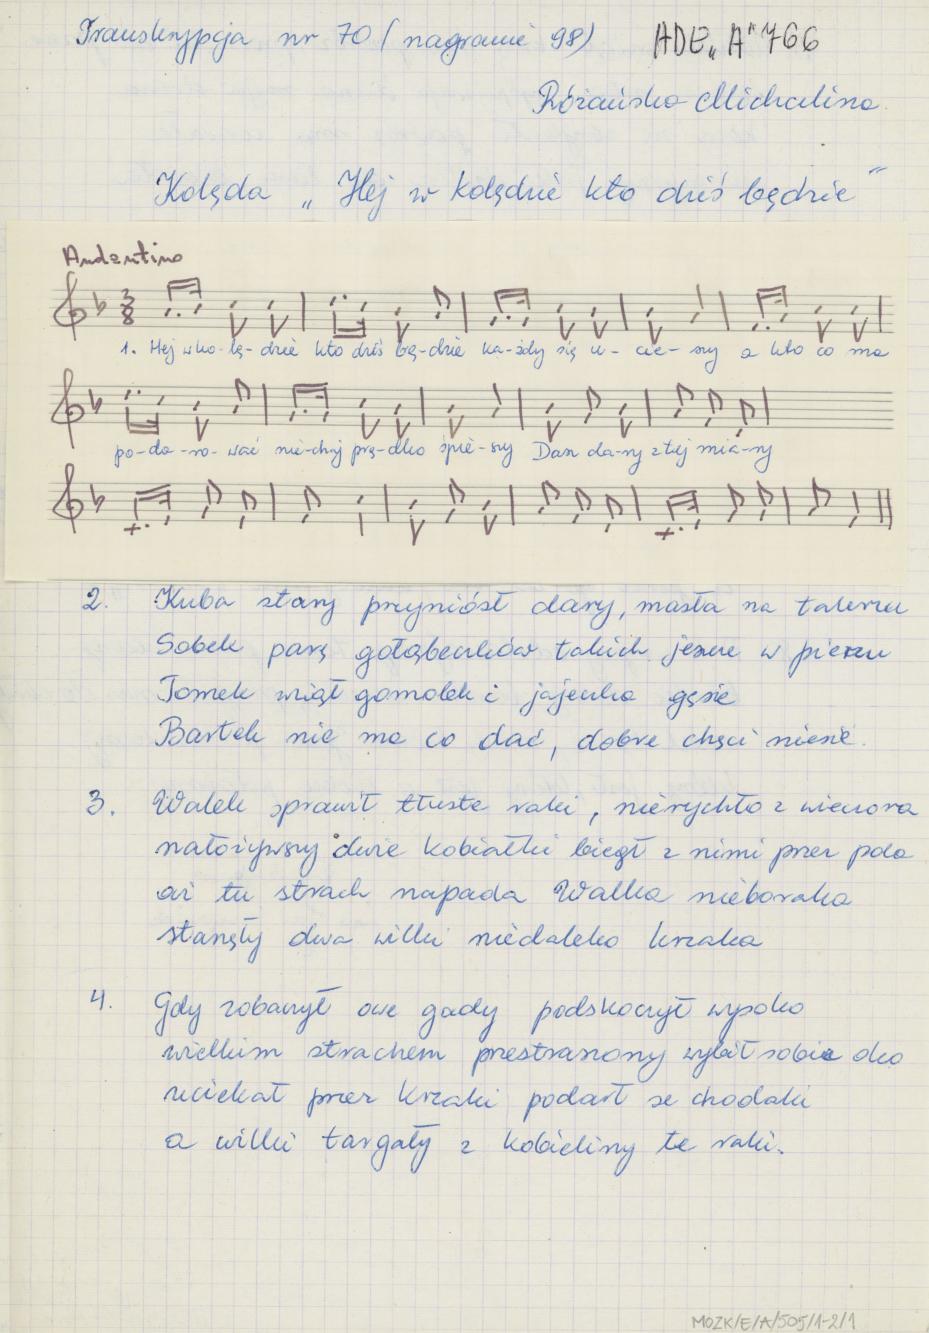 Transkrypcja nr 70 (nagranie 98) ADE "A" 766
Różańska Michalina
Kolęda „Hej w kolędzie kto dziś będzie"
Andantino
1. Hej w ko-lę-dzie kto dziś bę-dzie ka-żdy się u-cie-szy a kto co ma
po-da-ro-wać nie-chaj prę-dko śpie-szy Dan da-ny z tej mia-ny
2. Kuba stary przyniósł dary, masła na talerzu
Sobek parę gołąbeczków takich jeszcze w pierzu
Tomek wziął gomołek i jajeczka gęsie
Bartek nie ma co dać, dobre chęci niesie.
3. Walek sprawił tłuste raki, nierychło z wieczora
nałożywszy dwie kobiałki biegł z nimi przez pola
aż tu strach napada Walka nieboraka
stanęły dwa wilki niedaleko krzaka
4. Gdy zobaczył owe gady podskoczył wysoko
wielkim strachem przestraszony wybił sobie oko
uciekał przez krzaki podarł se chodaki
a wilki targały z kobieliny te raki.
MOZK/E/A/505/1-2/1